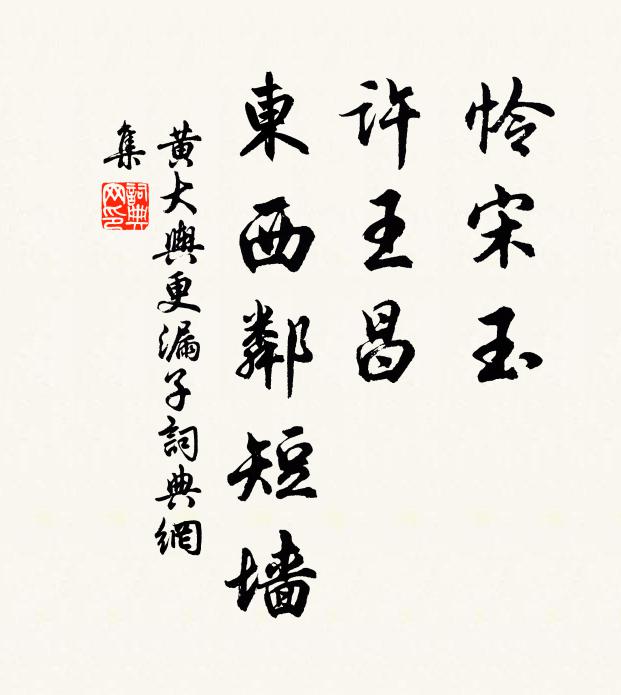 怜宋玉
許王昌
東西鄰短墻
黄大輿更漏子詞典網
集
詞典
网印